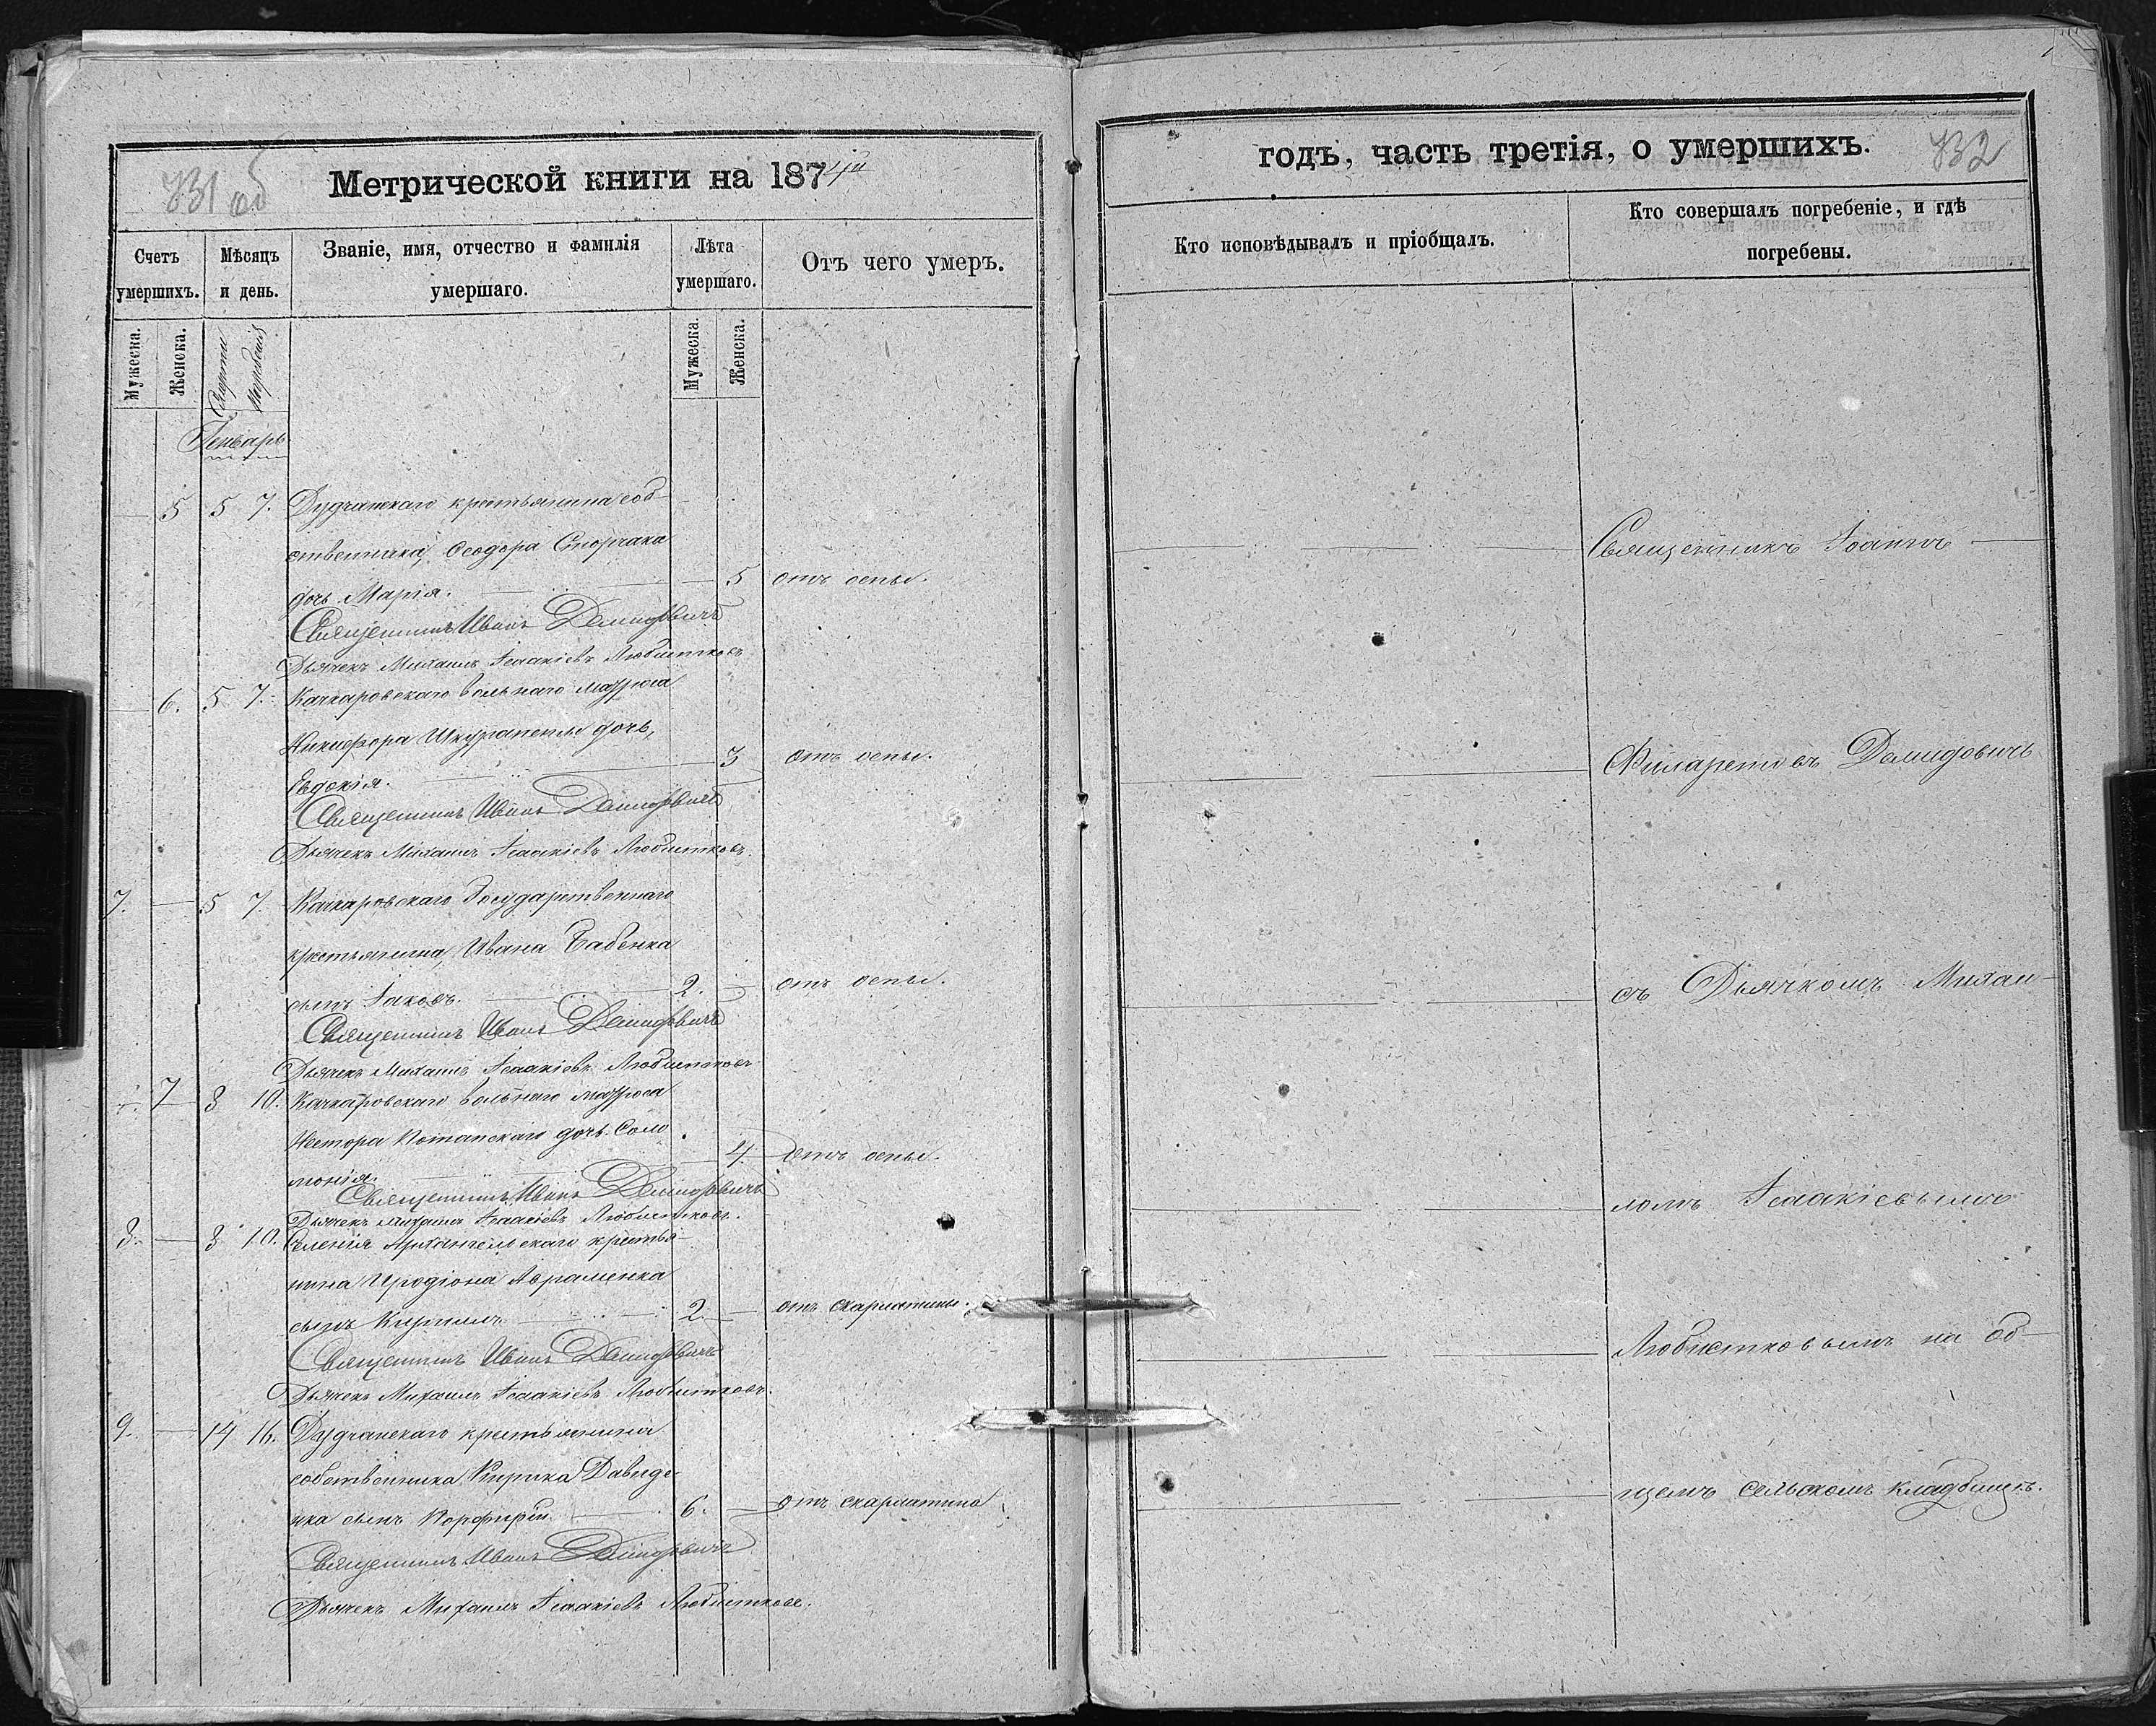 731 об
Метрической книги на 1874й
Счетъ умершихъ.
Мѣсяцъ и день.
Званіе, имя, отчество и фамилія умершаго.
Лѣта умершаго.
Отъ чего умеръ.
Мужеска.
Женска.
Смерти
Погребенія
Мужеска.
Женска.
Генварь
5 5 7. Дудчанскаго крестьянина соб-
ственника, Ѳеодора Сторчака
дочь Марія. 5 отъ оспы.
Священникъ Иванъ Демидовичъ
Дьячекъ Михаилъ Исаакіевъ Любистковъ
6. 5 7. Качкаровскаго вольнаго матроса
Никифора Шкурапеты дочь,
Евдокія. 3 отъ оспы.
Священникъ Иванъ Демидовичъ
Дьячекъ Михаилъ Исаакіевъ Любистковъ.
7. 5 7. Качкаровскаго Государственнаго
крестьянина, Ивана Бабенка
сынъ Іаковъ. 2. отъ оспы.
Священникъ Иванъ Демидовичъ
Дьячекъ Михаилъ Исаакіевъ Любистковъ
7 8 10. Качкаровскаго вольнаго матроса
Нестора Потапскаго дочь Соло
монія. 4. отъ оспы.
Священникъ Иванъ Демидовичъ
Дьячекъ Михаилъ Исаакіевъ Любистковъ.
8. 8 10. Селенія Архангельскаго крестья-
нина Иродіона Авраменка
сынъ Кириллъ. 2. отъ скарлатины.
Священникъ Иванъ Демидовичъ
Дьячекъ Михаилъ Исаакіевъ Любистковъ.
9. 14 16. Дудчанскаго крестьянина
собственника Кирика Давиде-
нка сынъ Порфирій 6. отъ скарлатины
Священникъ Иванъ Демидовичъ
Дьячекъ Михаилъ Исаакіевъ Любистковъ.
годъ, часть третія, о умершихъ.
732
Кто исповѣдывалъ и пріобщалъ.
Кто совершалъ погребеніе, и гдѣ погребены.
Священникъ Іоаннъ
Филаретовъ Демидовичъ
съ Дьячкомъ Михаи-
ломъ Исаакіевымъ
Любистковымъ на об-
щемъ сельскомъ кладбищѣ.